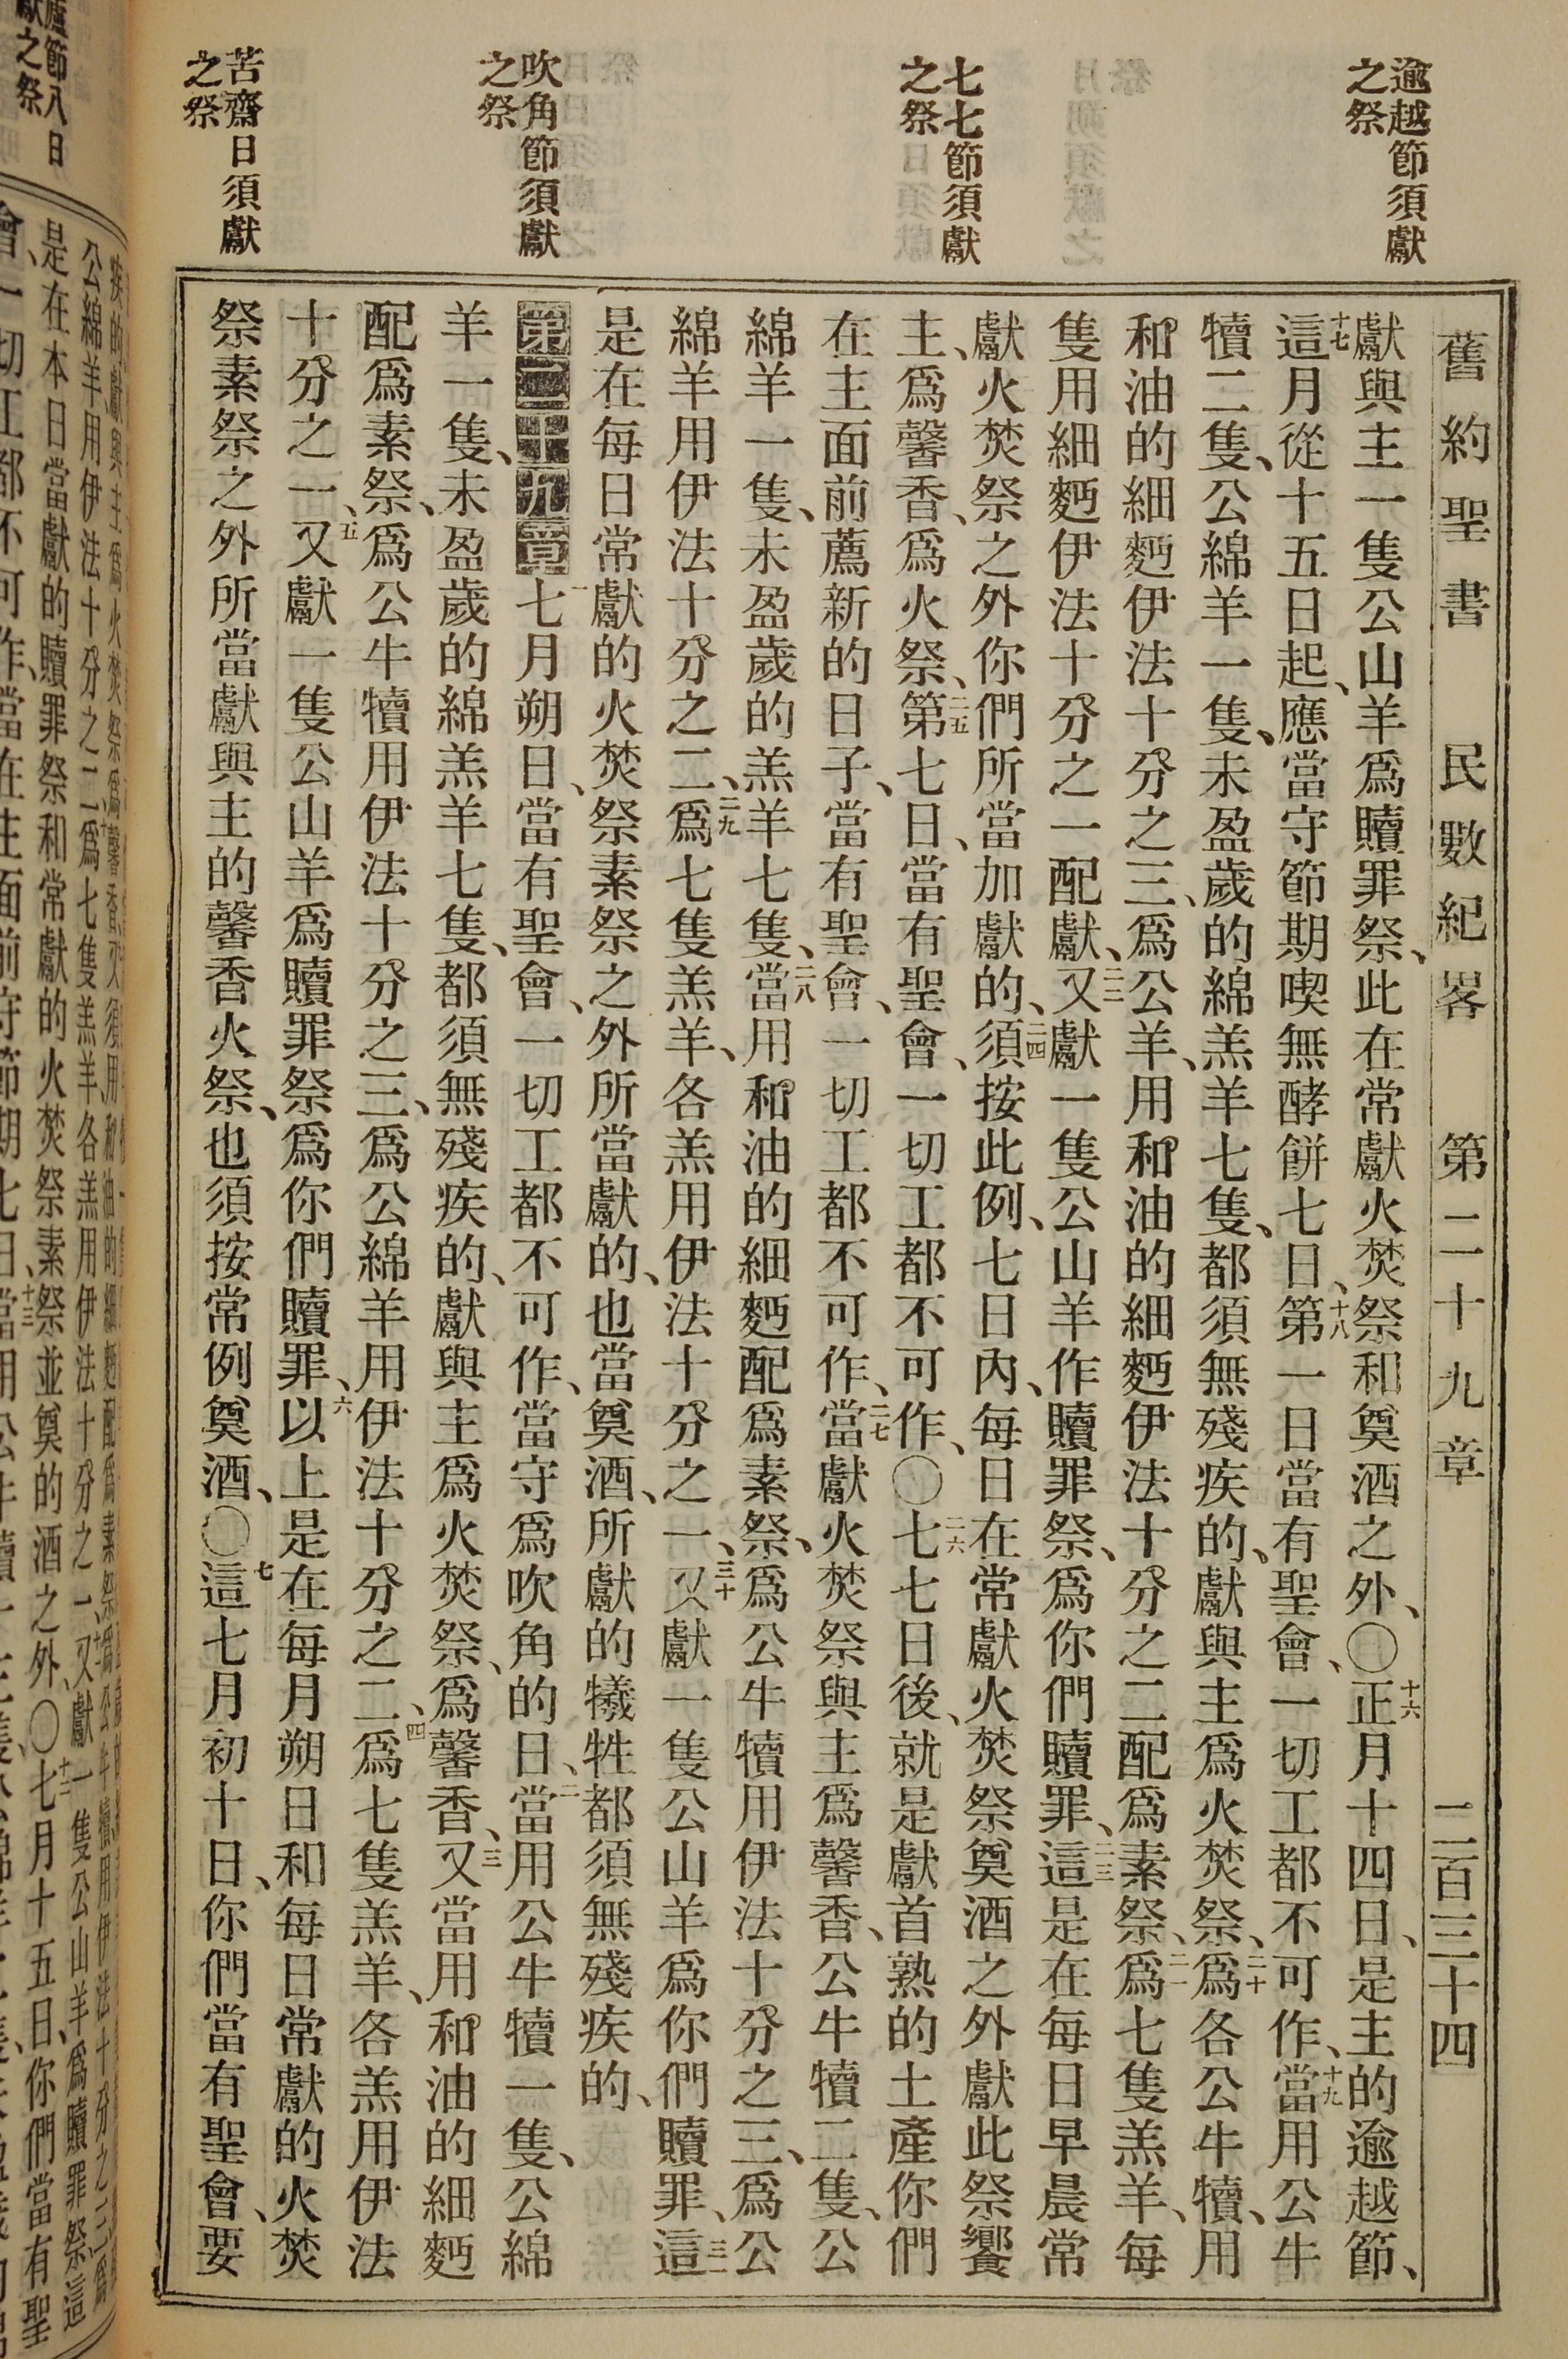 逾越節須獻
之祭
七七節須獻
之祭
吹角節須獻
之祭
苦齋日須獻
之祭
舊約聖書 民數紀畧 第二十九章 二百三十四
獻與主一隻公山羊爲贖罪祭、此在常獻火焚祭和奠酒之外、〇十六正月十四日、是主的逾越節、
十七這月從十五日起、應當守節期喫無酵餅七日、十八第一日當有聖會、一切工都不可作、十九當用公牛
犢二隻、公綿羊一隻、未盈歲的綿羔羊七隻、都須無殘疾的、獻與主爲火焚祭、二十爲各公牛犢、用
和油的細麪伊法十分之三、爲公羊、用和油的細麪伊法十分之二配爲素祭、二一爲七隻羔羊、每
隻用細麪伊法十分之一配獻、二二又獻一隻公山羊作贖罪祭、爲你們贖罪、二三這是在每日早晨常
獻火焚祭之外你們所當加獻的、二四須按此例、七日內、每日在常獻火焚祭奠酒之外獻此祭饗
主、爲馨香、爲火祭、二五第七日、當有聖會、一切工都不可作、〇二六七七日後、就是獻首熟的土產你們
在主面前薦新的日子、當有聖會、一切工都不可作、二七當獻火焚祭與主爲馨香、公牛犢二隻、公
綿羊一隻、未盈歲的羔羊七隻、二八當用和油的細麪配爲素祭、爲公牛犢用伊法十分之三、爲公
綿羊用伊法十分之二、二九爲七隻羔羊、各羔用伊法十分之一、三十又獻一隻公山羊爲你們贖罪、三一這
是在每日常獻的火焚祭素祭之外所當獻的、也當奠酒、所獻的犧牲都須無殘疾的、
第二十九章 一七月朔日、當有聖會、一切工都不可作、當守爲吹角的日、二當用公牛犢一隻、公綿
羊一隻、未盈歲的綿羔羊七隻、都須無殘疾的、獻與主爲火焚祭、爲馨香、三又當用和油的細麪
配爲素祭、爲公牛犢用伊法十分之三、爲公綿羊用伊法十分之二、四爲七隻羔羊、各羔用伊法
十分之一、五又獻一隻公山羊爲贖罪祭、爲你們贖罪、六以上是在每月朔日和每日常獻的火焚
祭素祭之外所當獻與主的馨香火祭、也須按常例奠酒、〇七這七月初十日、你們當有聖會、要
廬節八日
獻之祭
疾的獻與主爲火焚祭爲馨香
公綿羊用伊法十分之二、爲七隻羔羊、各羔用伊法十分之一、又獻一隻公山羊爲贖罪祭這
是在本日當獻的贖罪祭和常獻的火焚祭素祭並奠的酒之外、〇十二七月十五日、你們當有聖
會、一切工都不可作、當在主面前守節期七日、十三當用公牛犢十三隻